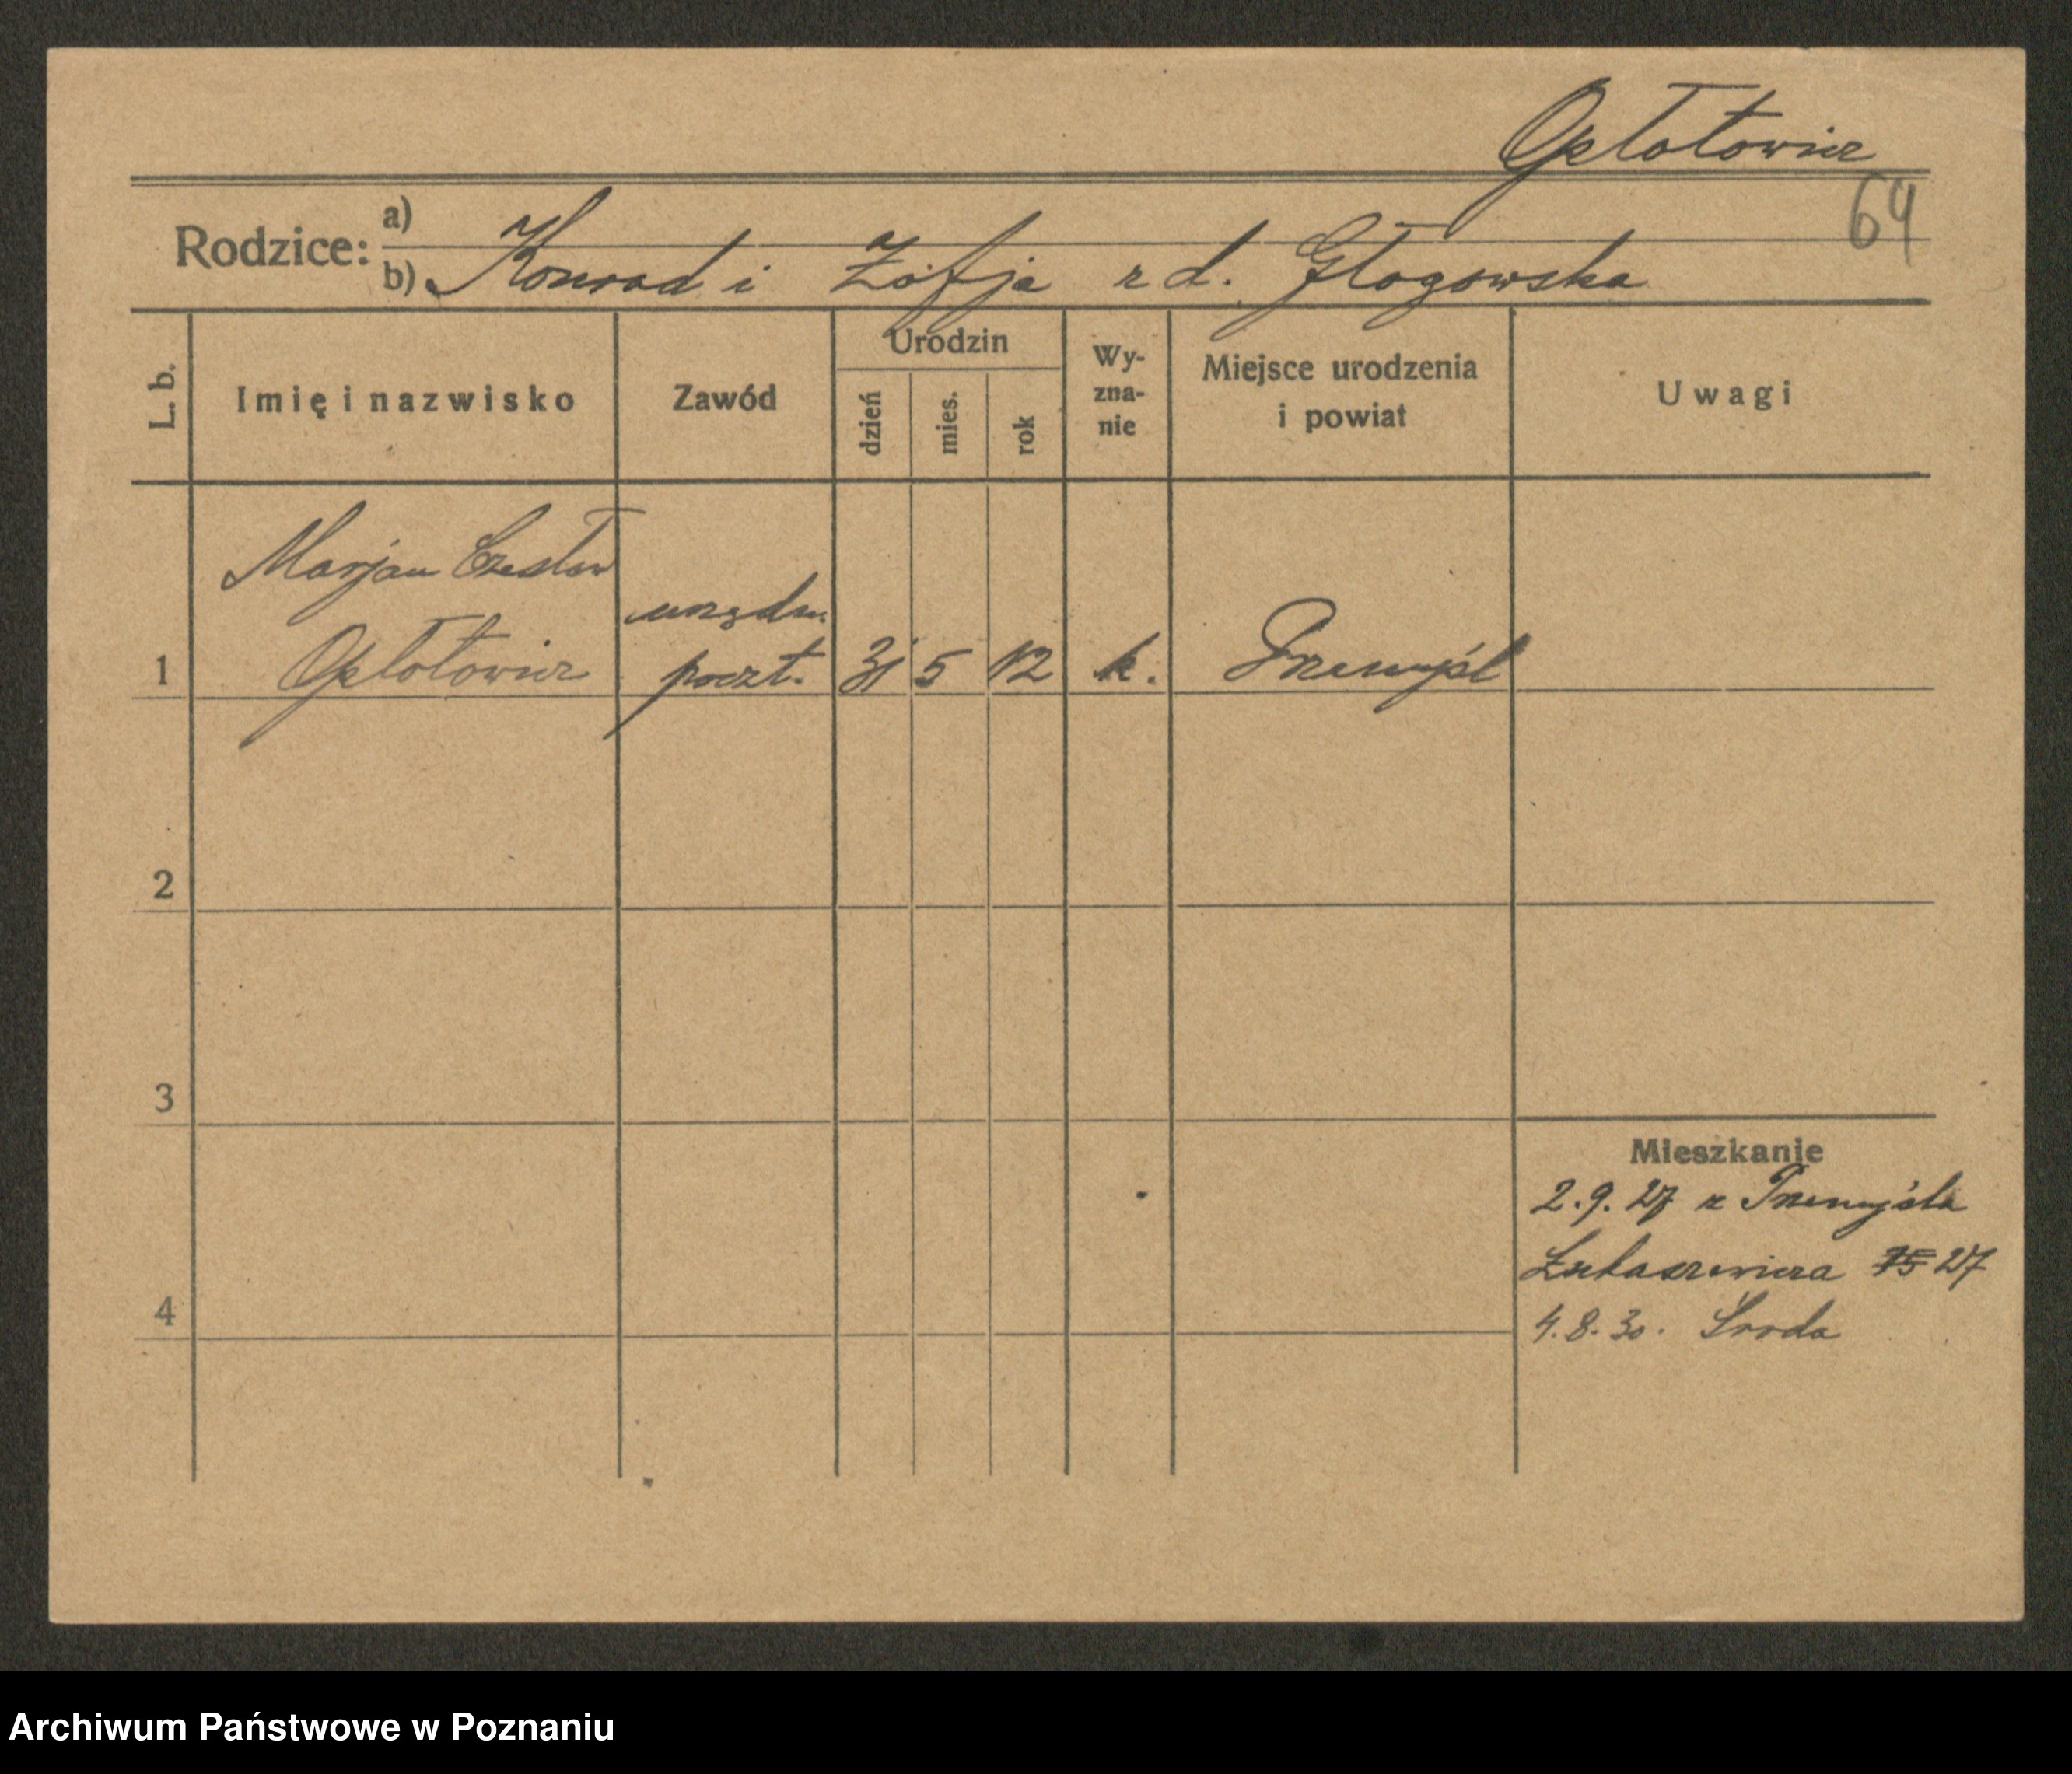 Opłotowicz
64
Rodzice: a)
b) Konrad i Zofja z d. Głogowska
L. b.
Imię i nazwisko
Zawód
Urodzin
dzień
mies.
rok
Wy-
zna-
nie
Miejsce urodzenia
i powiat
Uwagi
Marjan Czesław
Opłotowicz
urzędn.
poczt.
1
31 5 12 k. Przemyśl
2
3
4
Mieszkanie
2.9.27 z Przemyśla
Łukaszewicza 75 27
4.8.30. Środa
Archiwum Państwowe w Poznaniu